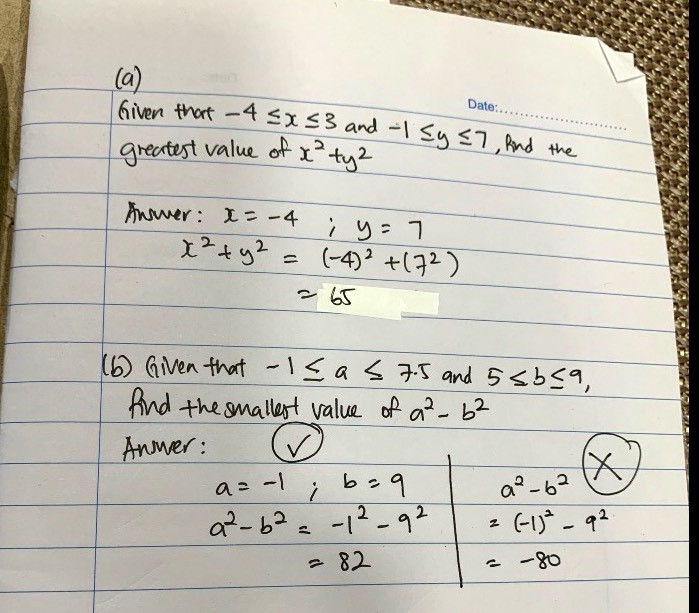 (a)
Date:
Given that -4 ≤ x ≤ 3 and -1 ≤ y ≤ 7, find the
greatest value of x² + y²
Answer: x = -4 ; y = 7
x² + y² = (-4)² + (7²)
= 65
(b) Given that -1 ≤ a ≤ 7.5 and 5 ≤ b ≤ 9,
find the smallest value of a² - b²
Answer: ✓
a = -1 ; b = 9
a² - b² = -1² - 9²
= 82
X
a² - b²
= (-1)² - 9²
= -80